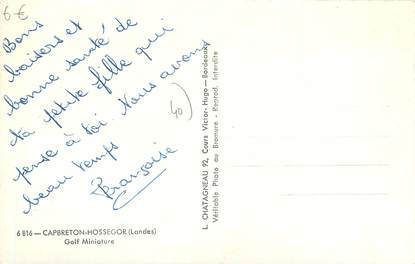 6€
Bons
baisers et
bonne santé de
ta petite fille qui
pense à toi. Nous avons
beau temps
Françoise
40
6 816 — CAPBRETON-HOSSEGOR (Landes)
Golf Miniature
L. CHATAGNEAU 92, Cours Victor-Hugo — Bordeaux
Véritable Photo au Bromure - Reprod. Interdite